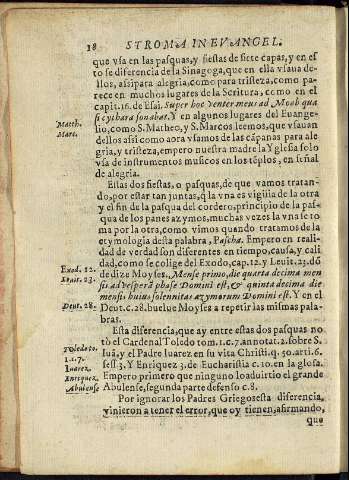 18 STROMA IN EVANGEL.
que vsa en las pasquas, y fiestas de siete capas, y en es
to se diferencia de la Sinagoga, que en ella vsaua de-
llos, assi para alegria, como para tristeza, como pa-
rece en muchos lugares de la Scritura, como en el
capit. 16. de Esai. Super hoc venter meus ad Moab qua
si cythara sonabat. Y en algunos lugares del Euange-
Matth. lio, como S. Matheo, y S. Marcos leemos, que vsauan
Marc. dellos assi como aora vsamos de las cãpanas para ale
gria, y tristeza, empero nuestra madre la Yglesia solo
vsa de instrumentos musicos en los tẽplos, en señal
de alegria.
Estas dos fiestas, o pasquas, de que vamos tratan-
do, por estar tan juntas, q̃ la vna es vigilia de la otra
y el fin de la pasqua del cordero, principio de la pas-
qua de los panes azymos, muchas vezes la vna se to
ma por la otra, como vimos quando tratamos de la
etymologia desta palabra, Pascha. Empero en reali-
dad de verdad son diferentes en tiempo, causa, y cali
dad, como se colige del Exodo, cap. 12. y Leuit. 23. dõ
Exod. 12. de dize Moyses. Mense primo, die quarta decima men
Leuit. 23. sis ad vesperã phase Domini est, & quinta decima die
mensis huius solennitas azymorum Domini est. Y en el
Deut. 28. Deut. c. 28. buelue Moyses a repetir las mismas pala-
bras.
Esta diferencia, que ay entre estas dos pasquas no
Toledo to. tò el Cardenal Toledo tom. 1. c. 7. annotat. 2. sobre S.
1. c. 7. Iuã, y el Padre Iuarez en su vita Christi. q. 50. arti. 6.
Iuarez. sess. 3. Y Enriquez 3. de Eucharistia c. 10. en la glosa.
Enriquez. Empero primero que ninguno lo aduirtio el grande
Abulense Abulense, segunda parte defenso c. 8.
Por ignorar los Padres Griegos esta diferencia,
vinieron a tener el error, que oy tienen, afirmando,
que